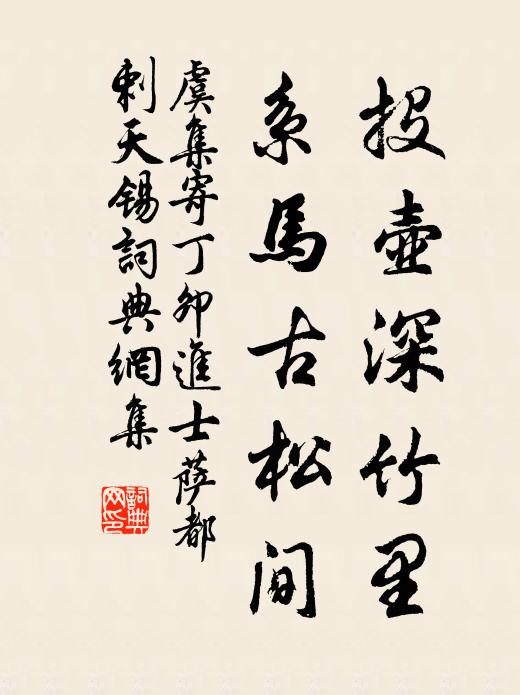 投壺深竹里
系馬古松間
虞集寄丁卯進士薩都
剌天錫詞典網集
詞典網印